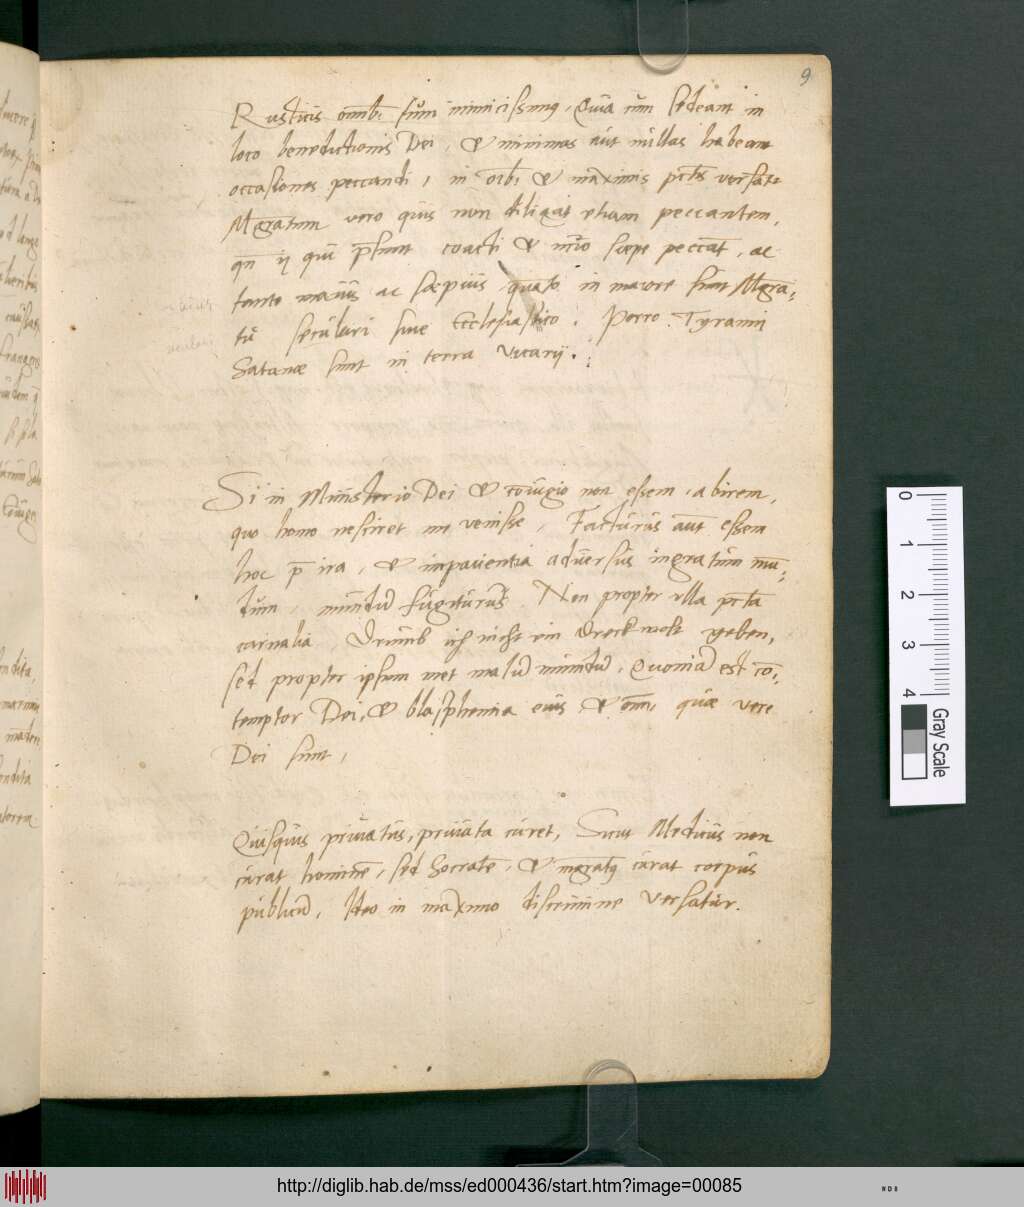 9
Rusticis omnibꝫ sum inimicissimus, Quia cum sedeant in
loco benedictionis Dei, & minimas aut nullas habeant
occasiones peccandi, in oībꝫ & maximis pctīs versātr
Mgrātum vero quis non diligat etiam peccantem,
qn̄ ij qui p̄sunt coacti & in vero saepe peccāt, ac
tanto magis ac saepius quāto in maiore sunt Mgra-
tu seculari siue Ecclesiastico. Porro Tyranni
Satanae sunt in terra Vicarij.
Si in Ministerio Dei & coniugio non essem, abirem,
quo homo nesciret me venisse, Facturus aut essem
hoc p̄ ira, & impatientia aduersus ingratum mū-
dum, mundū fugiturus. Non propter vlla pctā
carnalia Drumb ich nicht ein Dreck wolt geben,
sed propter ipsum met malum mundū, Quoniā est cō-
temptor Dei, & blasphemia eius & omī, quae vere
Dei sunt,
Quisquis priuatus, priuata curet, Sicut Medicus non
curat hominē, sed Socratē, & magratꝰ curat corpus
publicū, Ideo in maximo discrimine versatur.
0
1
2
3
4
Gray Scale
http://diglib.hab.de/mss/ed000436/start.htm?image=00085